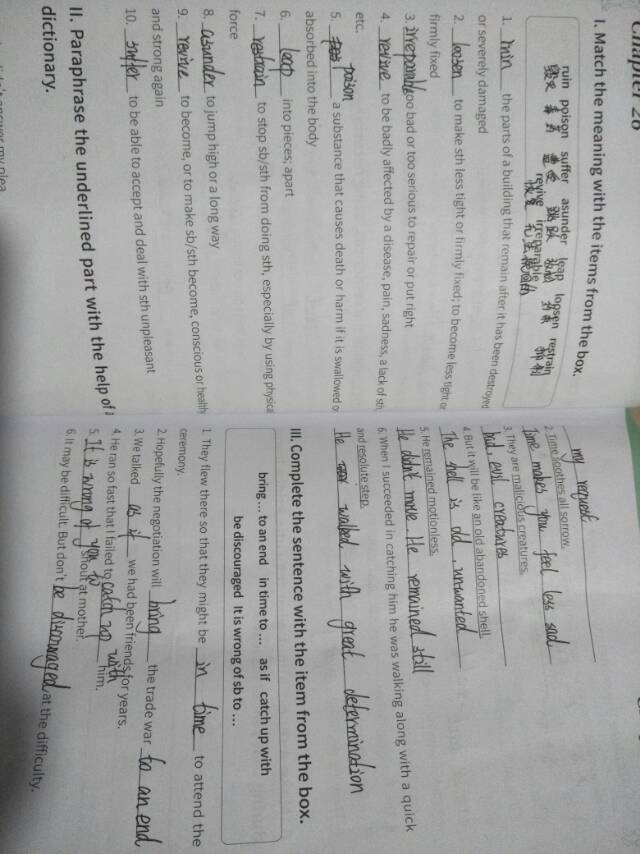 Chapter 26
I. Match the meaning with the items from the box.
ruin poison suffer asunder leap loosen restrain
revive irreparable
1. ruin the parts of a building that remain after it has been destroyed
or severely damaged
2. loosen to make sth less tight or firmly fixed; to become less tight or
firmly fixed
3. irreparable too bad or too serious to repair or put right
4. revive to be badly affected by a disease, pain, sadness, a lack of sth,
etc.
5. poison a substance that causes death or harm if it is swallowed or
absorbed into the body
6. leap into pieces; apart
7. restrain to stop sb/sth from doing sth, especially by using physical
force
8. asunder to jump high or a long way
9. revive to become, or to make sb/sth become, conscious or healthy
and strong again
10. suffer to be able to accept and deal with sth unpleasant
II. Paraphrase the underlined part with the help of
dictionary.
my request
2. Time soothes all sorrow.
Time makes you feel less sad
3. They are malicious creatures.
bad, evil creatures
4. But it will be like an old abandoned shell.
The shell is old, unwanted
5. He remained motionless.
He didn't move He remained still
6. When I succeeded in catching him he was walking along with a quick
and resolute step.
He walked with great determination
III. Complete the sentence with the item from the box.
bring ... to an end in time to ... as if catch up with
be discouraged It is wrong of sb to ...
1. They flew there so that they might be in time to attend the
ceremony.
2. Hopefully the negotiation will bring the trade war to an end
3. We talked as if we had been friends for years.
4. He ran so fast that I failed to catch up with him.
5. It is wrong of you to shout at mother.
6. It may be difficult. But don't be discouraged at the difficulty.